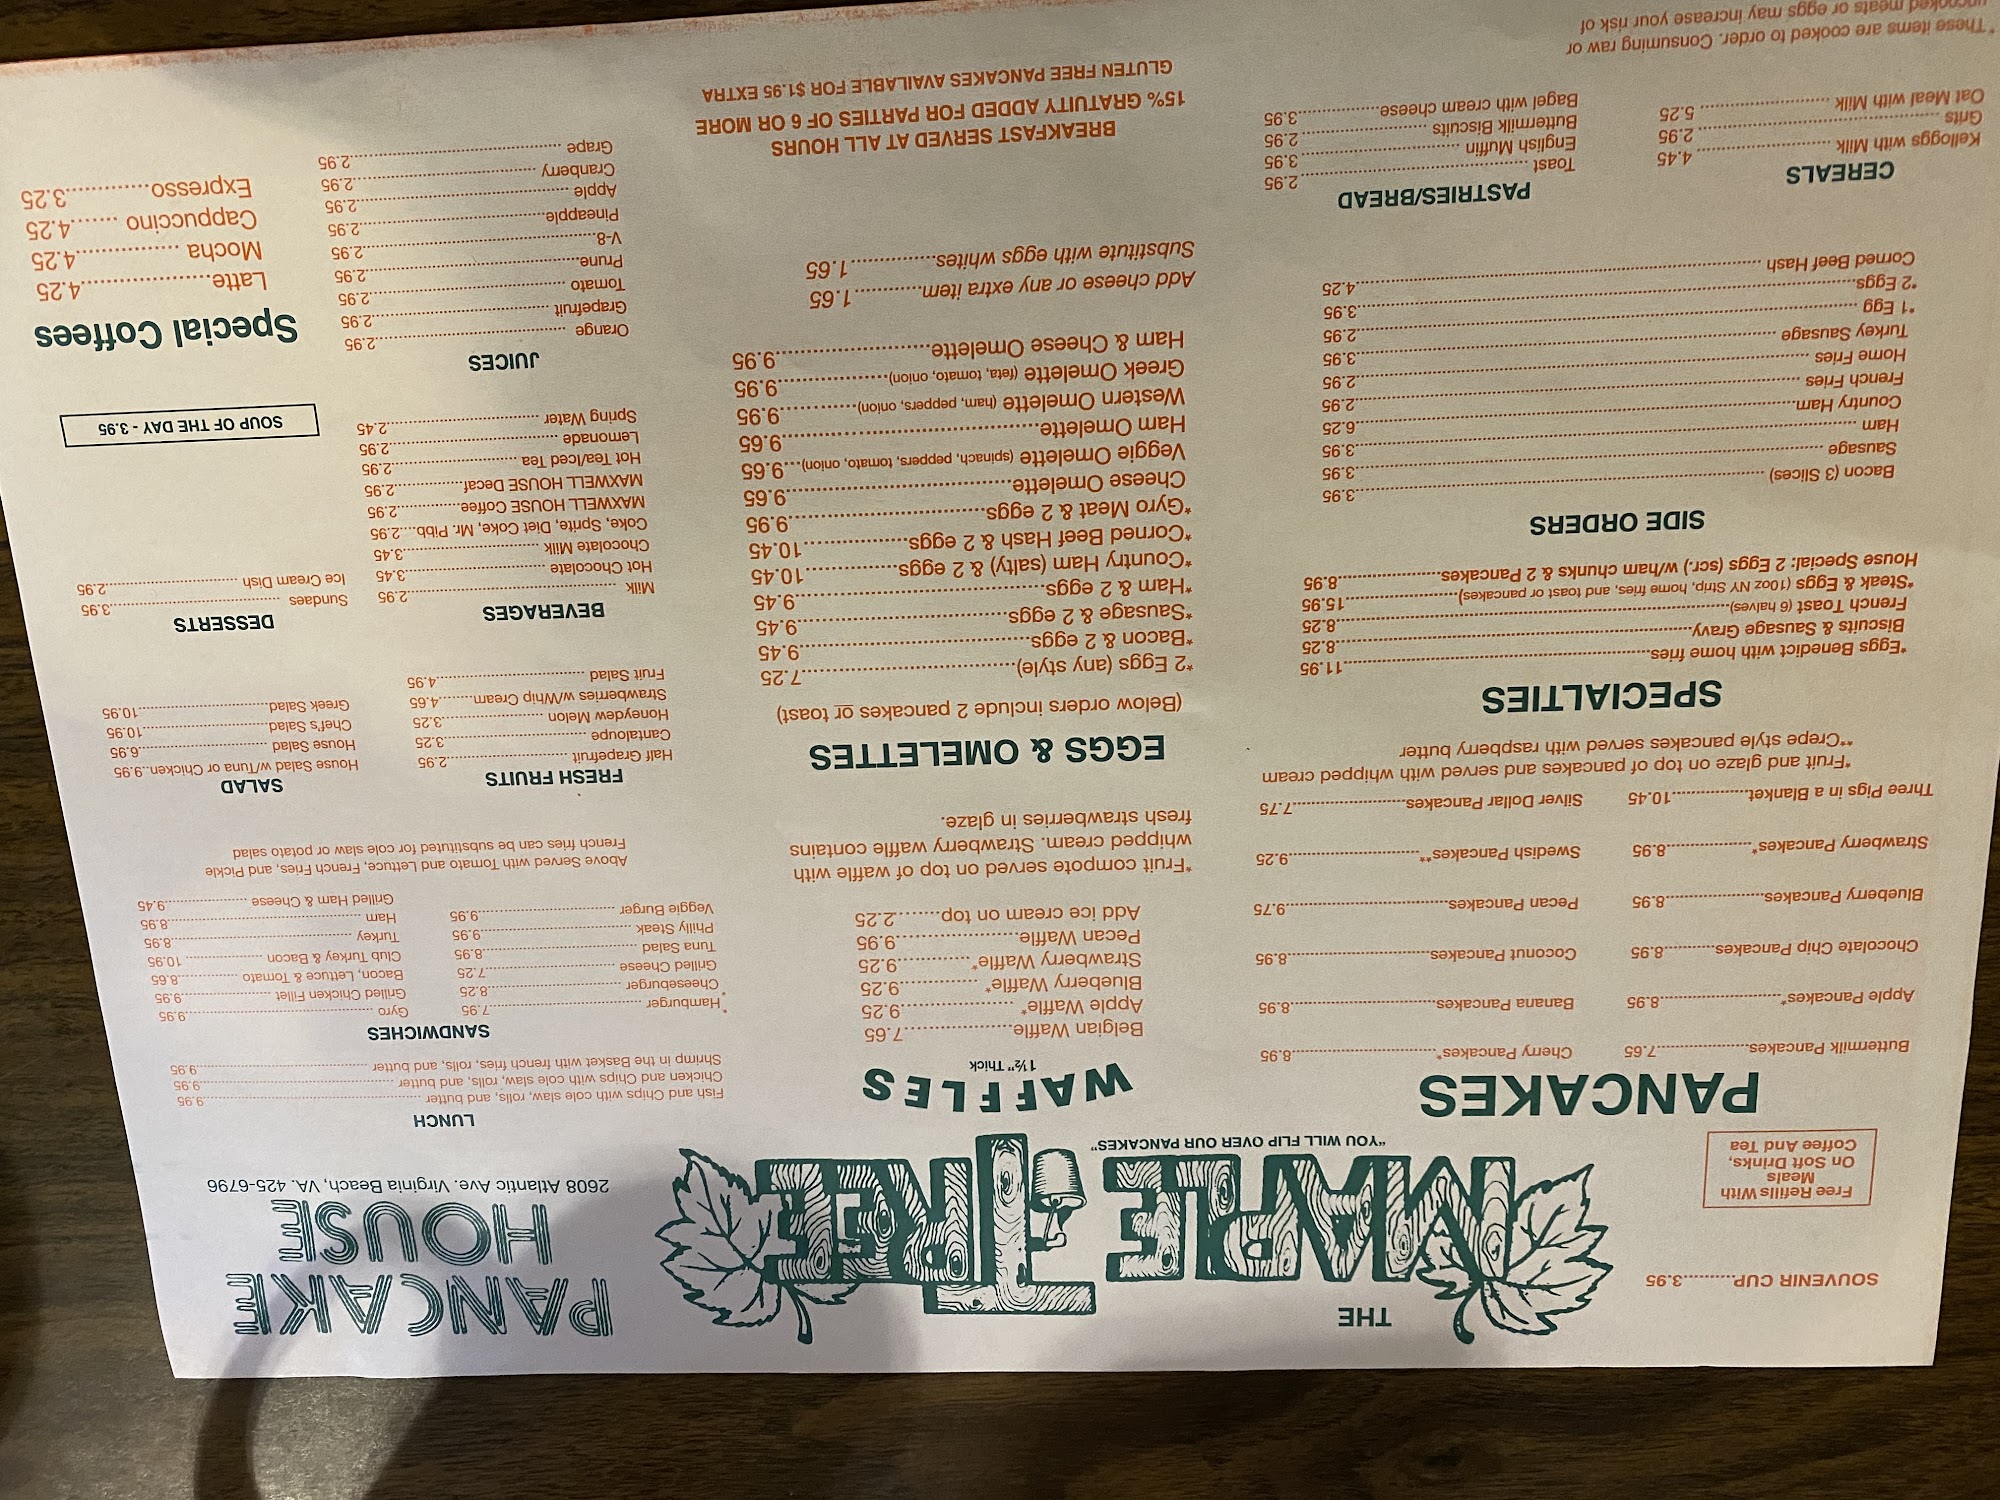 SOUVENIR CUP..........3.95
Free Refills With
Meals
On Soft Drinks,
Coffee And Tea
THE
MAPLE TREE
"YOU WILL FLIP OVER OUR PANCAKES"
PANCAKE
HOUSE
2608 Atlantic Ave. Virginia Beach, VA. 425-6796
PANCAKES
Buttermilk Pancakes..........7.65
Apple Pancakes*..........8.95
Chocolate Chip Pancakes..........8.95
Blueberry Pancakes..........8.95
Strawberry Pancakes*..........8.95
Three Pigs in a Blanket..........10.45
Cherry Pancakes*..........8.95
Banana Pancakes..........8.95
Coconut Pancakes..........8.95
Pecan Pancakes..........9.75
Swedish Pancakes**..........9.25
Silver Dollar Pancakes..........7.75
*Fruit and glaze on top of pancakes and served with whipped cream
**Crepe style pancakes served with raspberry butter
SPECIALTIES
*Eggs Benedict with home fries..........11.95
Biscuits & Sausage Gravy..........8.25
French Toast (6 halves)..........8.25
*Steak & Eggs (10oz NY Strip, home fries, and toast or pancakes)..........15.95
House Special: 2 Eggs (scr.) w/ham chunks & 2 Pancakes..........8.95
SIDE ORDERS
Bacon (3 Slices)..........3.95
Sausage..........3.95
Ham..........3.95
Country Ham..........6.25
French Fries..........2.95
Home Fries..........2.95
Turkey Sausage..........3.95
*1 Egg..........2.95
*2 Eggs..........3.95
Corned Beef Hash..........4.25
CEREALS
Kelloggs with Milk..........4.45
Grits..........2.95
Oat Meal with Milk..........5.25
PASTRIES/BREAD
Toast..........2.95
English Muffin..........3.95
Buttermilk Biscuits..........2.95
Bagel with cream cheese..........3.95
*These items are cooked to order. Consuming raw or
uncooked meats or eggs may increase your risk of
WAFFLES
1½" Thick
Belgian Waffle..........7.65
Apple Waffle*..........9.25
Blueberry Waffle*..........9.25
Strawberry Waffle*..........9.25
Pecan Waffle..........9.95
Add ice cream on top..........2.25
*Fruit compote served on top of waffle with
whipped cream. Strawberry waffle contains
fresh strawberries in glaze.
EGGS & OMELETTES
(Below orders include 2 pancakes or toast)
*2 Eggs (any style)..........7.25
*Bacon & 2 eggs..........9.45
*Sausage & 2 eggs..........9.45
*Ham & 2 eggs..........9.45
*Country Ham (salty) & 2 eggs..........10.45
*Corned Beef Hash & 2 eggs..........10.45
*Gyro Meat & 2 eggs..........9.95
Cheese Omelette..........9.65
Veggie Omelette (spinach, peppers, tomato, onion)...9.65
Ham Omelette..........9.65
Western Omelette (ham, peppers, onion)..........9.95
Greek Omelette (feta, tomato, onion)..........9.95
Ham & Cheese Omelette..........9.95
Add cheese or any extra item..........1.65
Substitute with eggs whites..........1.65
BREAKFAST SERVED AT ALL HOURS
15% GRATUITY ADDED FOR PARTIES OF 6 OR MORE
GLUTEN FREE PANCAKES AVAILABLE FOR $1.95 EXTRA
LUNCH
Fish and Chips with cole slaw, rolls, and butter..........9.95
Chicken and Chips with cole slaw, rolls, and butter..........9.95
Shrimp in the Basket with french fries, rolls, and butter..........9.95
SANDWICHES
*Hamburger..........7.95
*Cheeseburger..........8.25
Grilled Cheese..........7.25
Tuna Salad..........8.95
Philly Steak..........9.95
Veggie Burger..........9.95
Gyro..........9.95
Grilled Chicken Fillet..........9.95
Bacon, Lettuce & Tomato..........8.65
Club Turkey & Bacon..........10.95
Turkey..........8.95
Ham..........8.95
Grilled Ham & Cheese..........9.45
Above Served with Tomato and Lettuce, French Fries, and Pickle
French fries can be substituted for cole slaw or potato salad
FRESH FRUITS
Half Grapefruit..........2.95
Cantaloupe..........3.25
Honeydew Melon..........3.25
Strawberries w/Whip Cream..........4.65
Fruit Salad..........4.95
SALAD
House Salad w/Tuna or Chicken..9.95
House Salad..........6.95
Chef's Salad..........10.95
Greek Salad..........10.95
BEVERAGES
Milk..........2.95
Hot Chocolate..........3.45
Chocolate Milk..........3.45
Coke, Sprite, Diet Coke, Mr. Pibb....2.95
MAXWELL HOUSE Coffee..........2.95
MAXWELL HOUSE Decaf..........2.95
Hot Tea/Iced Tea..........2.95
Lemonade..........2.95
Spring Water..........2.45
DESSERTS
Sundaes..........3.95
Ice Cream Dish..........2.95
SOUP OF THE DAY - 3.95
JUICES
Orange..........2.95
Grapefruit..........2.95
Tomato..........2.95
Prune..........2.95
V-8..........2.95
Pineapple..........2.95
Apple..........2.95
Cranberry..........2.95
Grape..........2.95
Special Coffees
Latte..........4.25
Mocha..........4.25
Cappuccino..........4.25
Expresso..........3.25